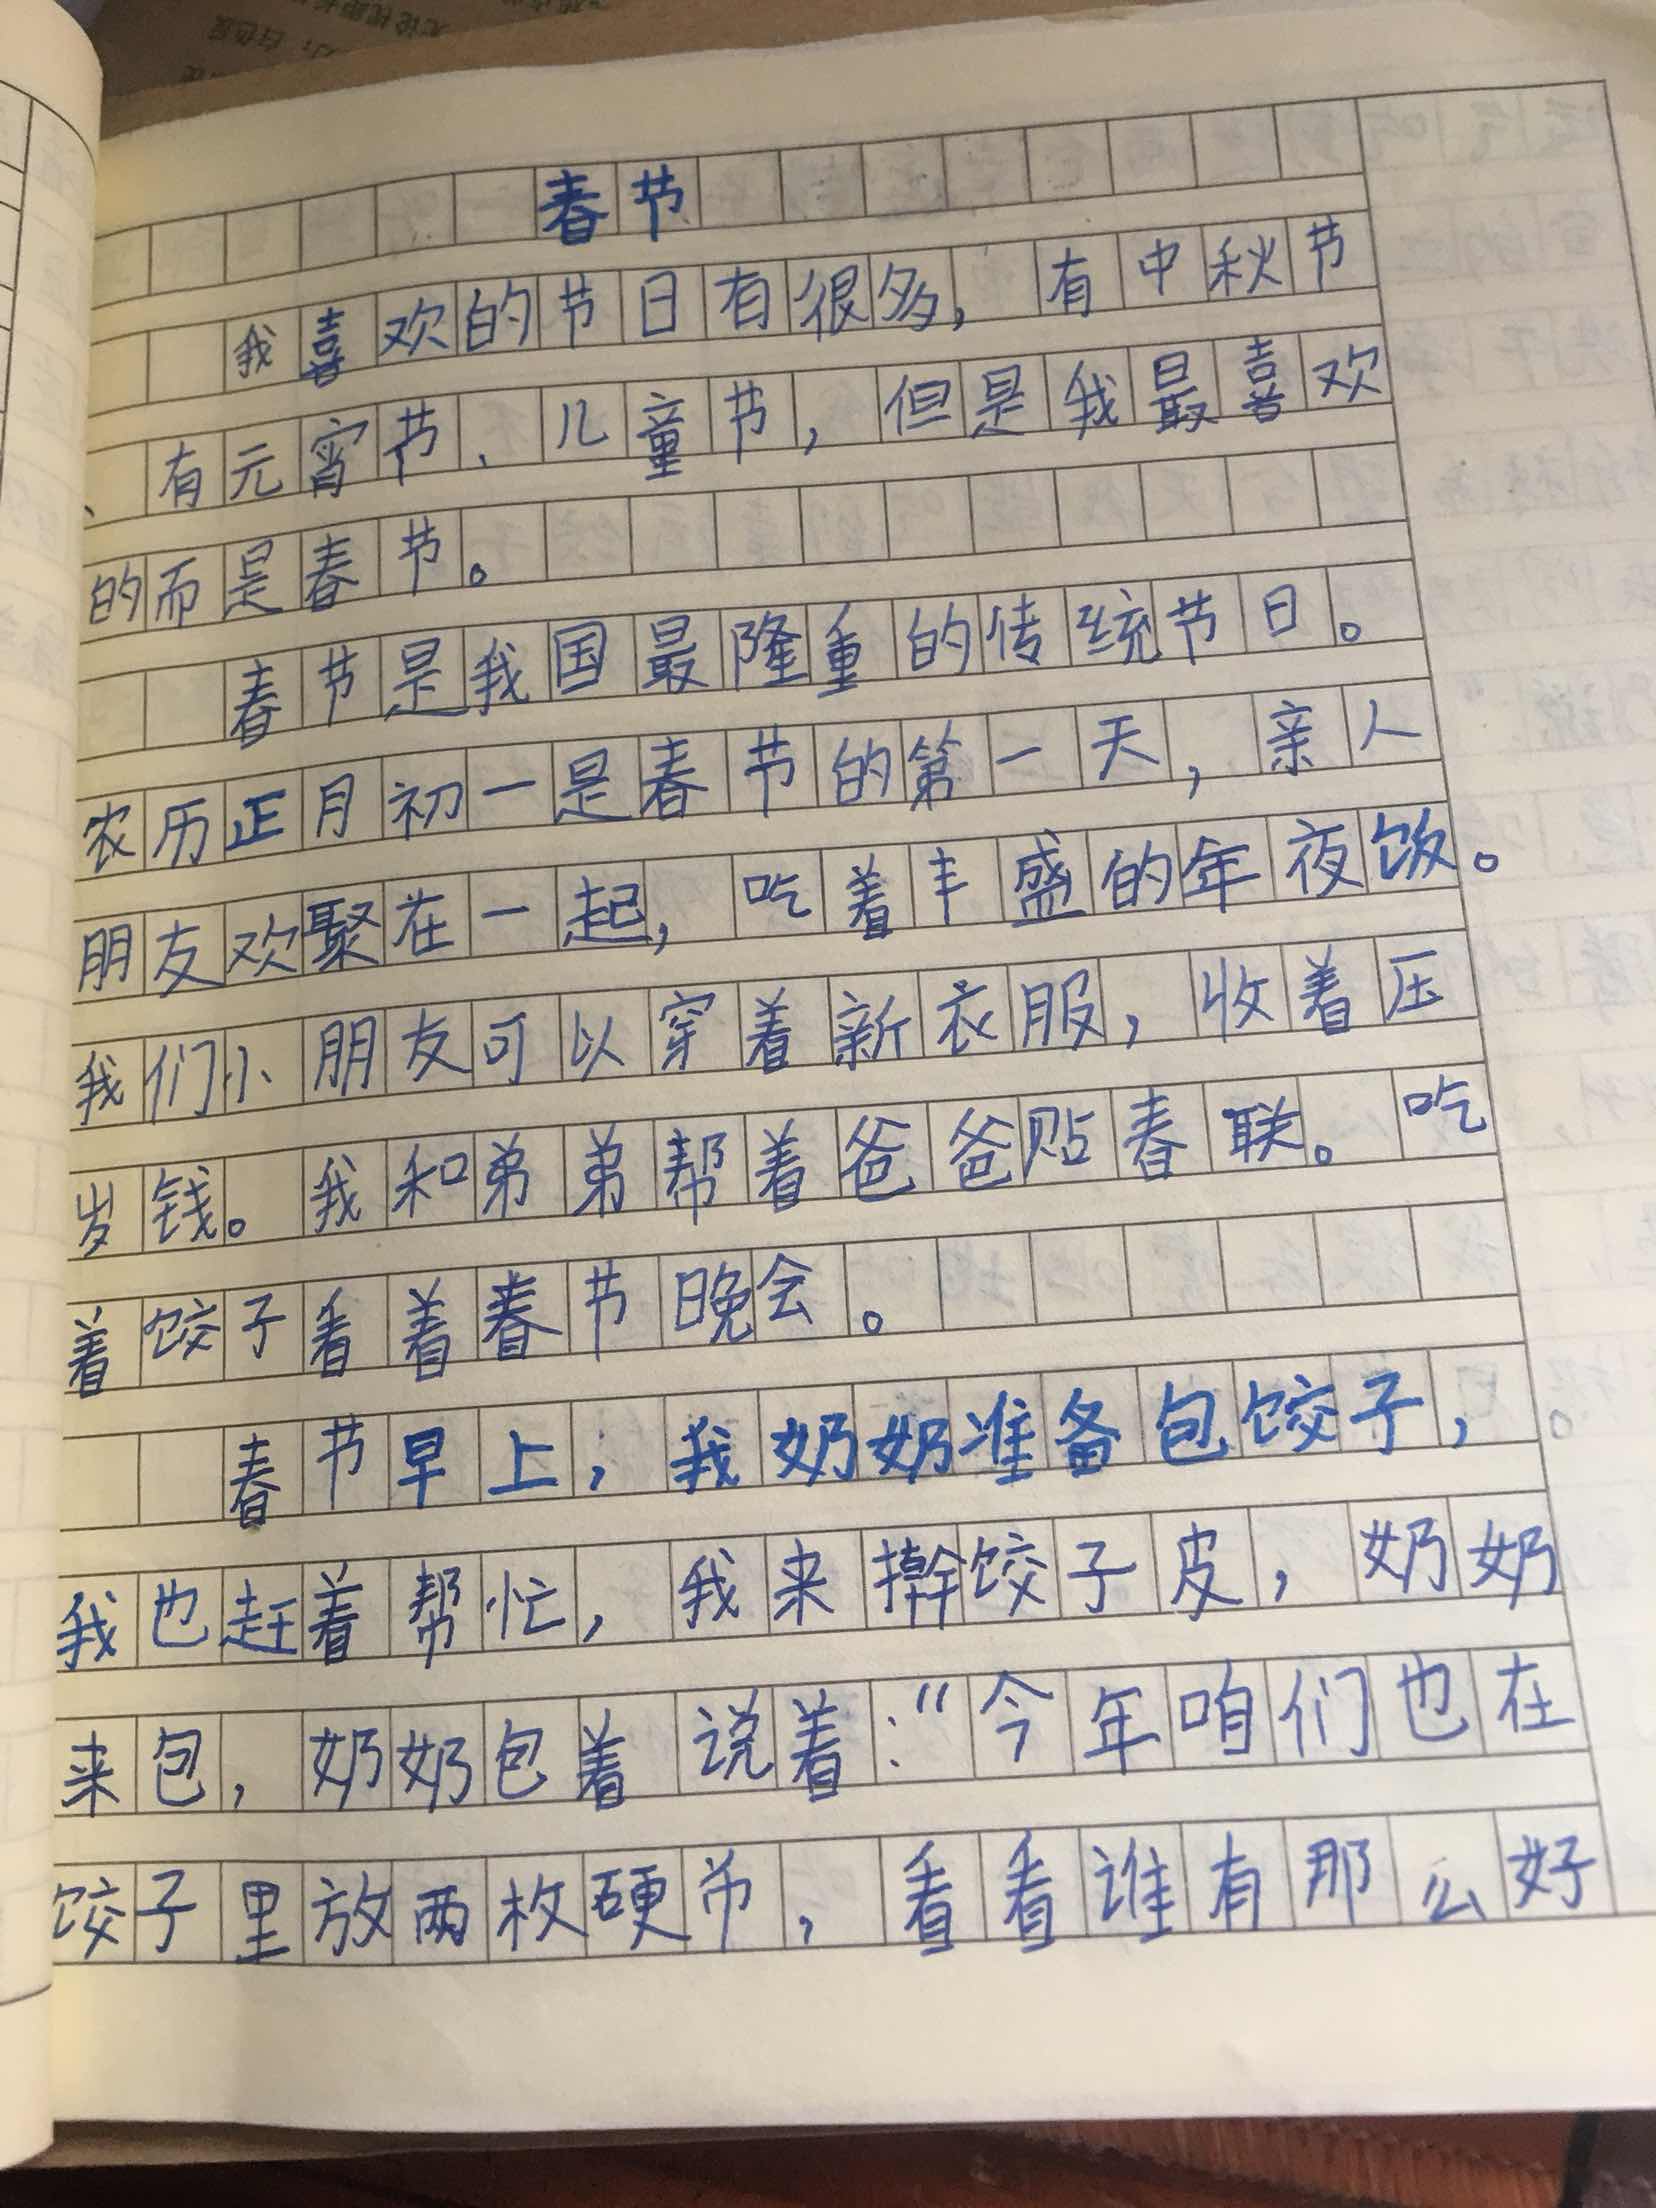 春节
我喜欢的节日有很多，有中秋节
、有元宵节、儿童节，但是我最喜欢
的而是春节。
春节是我国最隆重的传统节日。
农历正月初一是春节的第一天，亲人
朋友欢聚在一起，吃着丰盛的年夜饭。
我们小朋友可以穿着新衣服，收着压
岁钱。我和弟弟帮着爸爸贴春联。吃
着饺子看着春节晚会。
春节早上，我奶奶准备包饺子，
我也赶着帮忙，我来擀饺子皮，奶奶
来包，奶奶包着说着：“今年咱们也在
饺子里放两枚硬币，看看谁有那么好